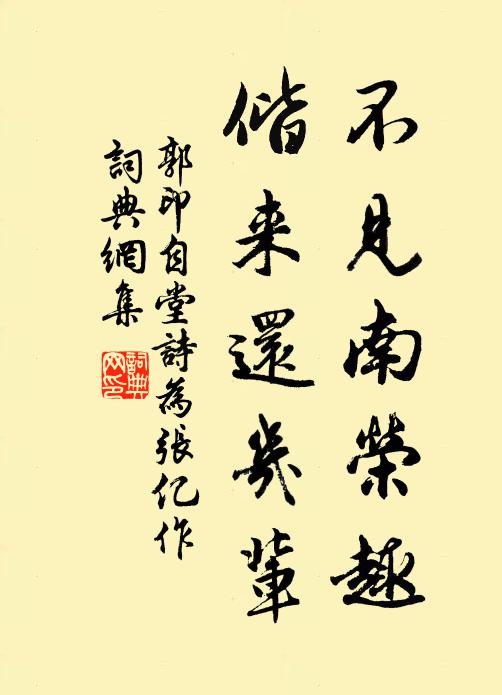 不見南榮趎
偕来還幾輩
郭印自堂詩為張仡作
詞典網集
詞典
网印